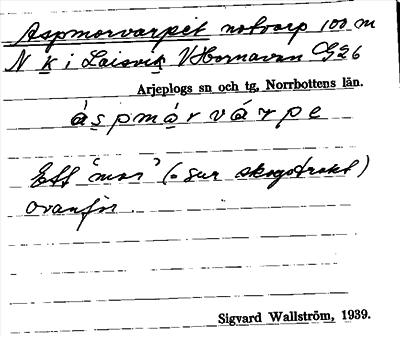 Aspmorvarpet notvarp 100 m
N k i Laisvik V Hornavan G26
Arjeplogs sn och tg, Norrbottens län.
áspmårvárpe
Ett "mor" (= sur skogstrakt)
ovanför.
Sigvard Wallström, 1939.